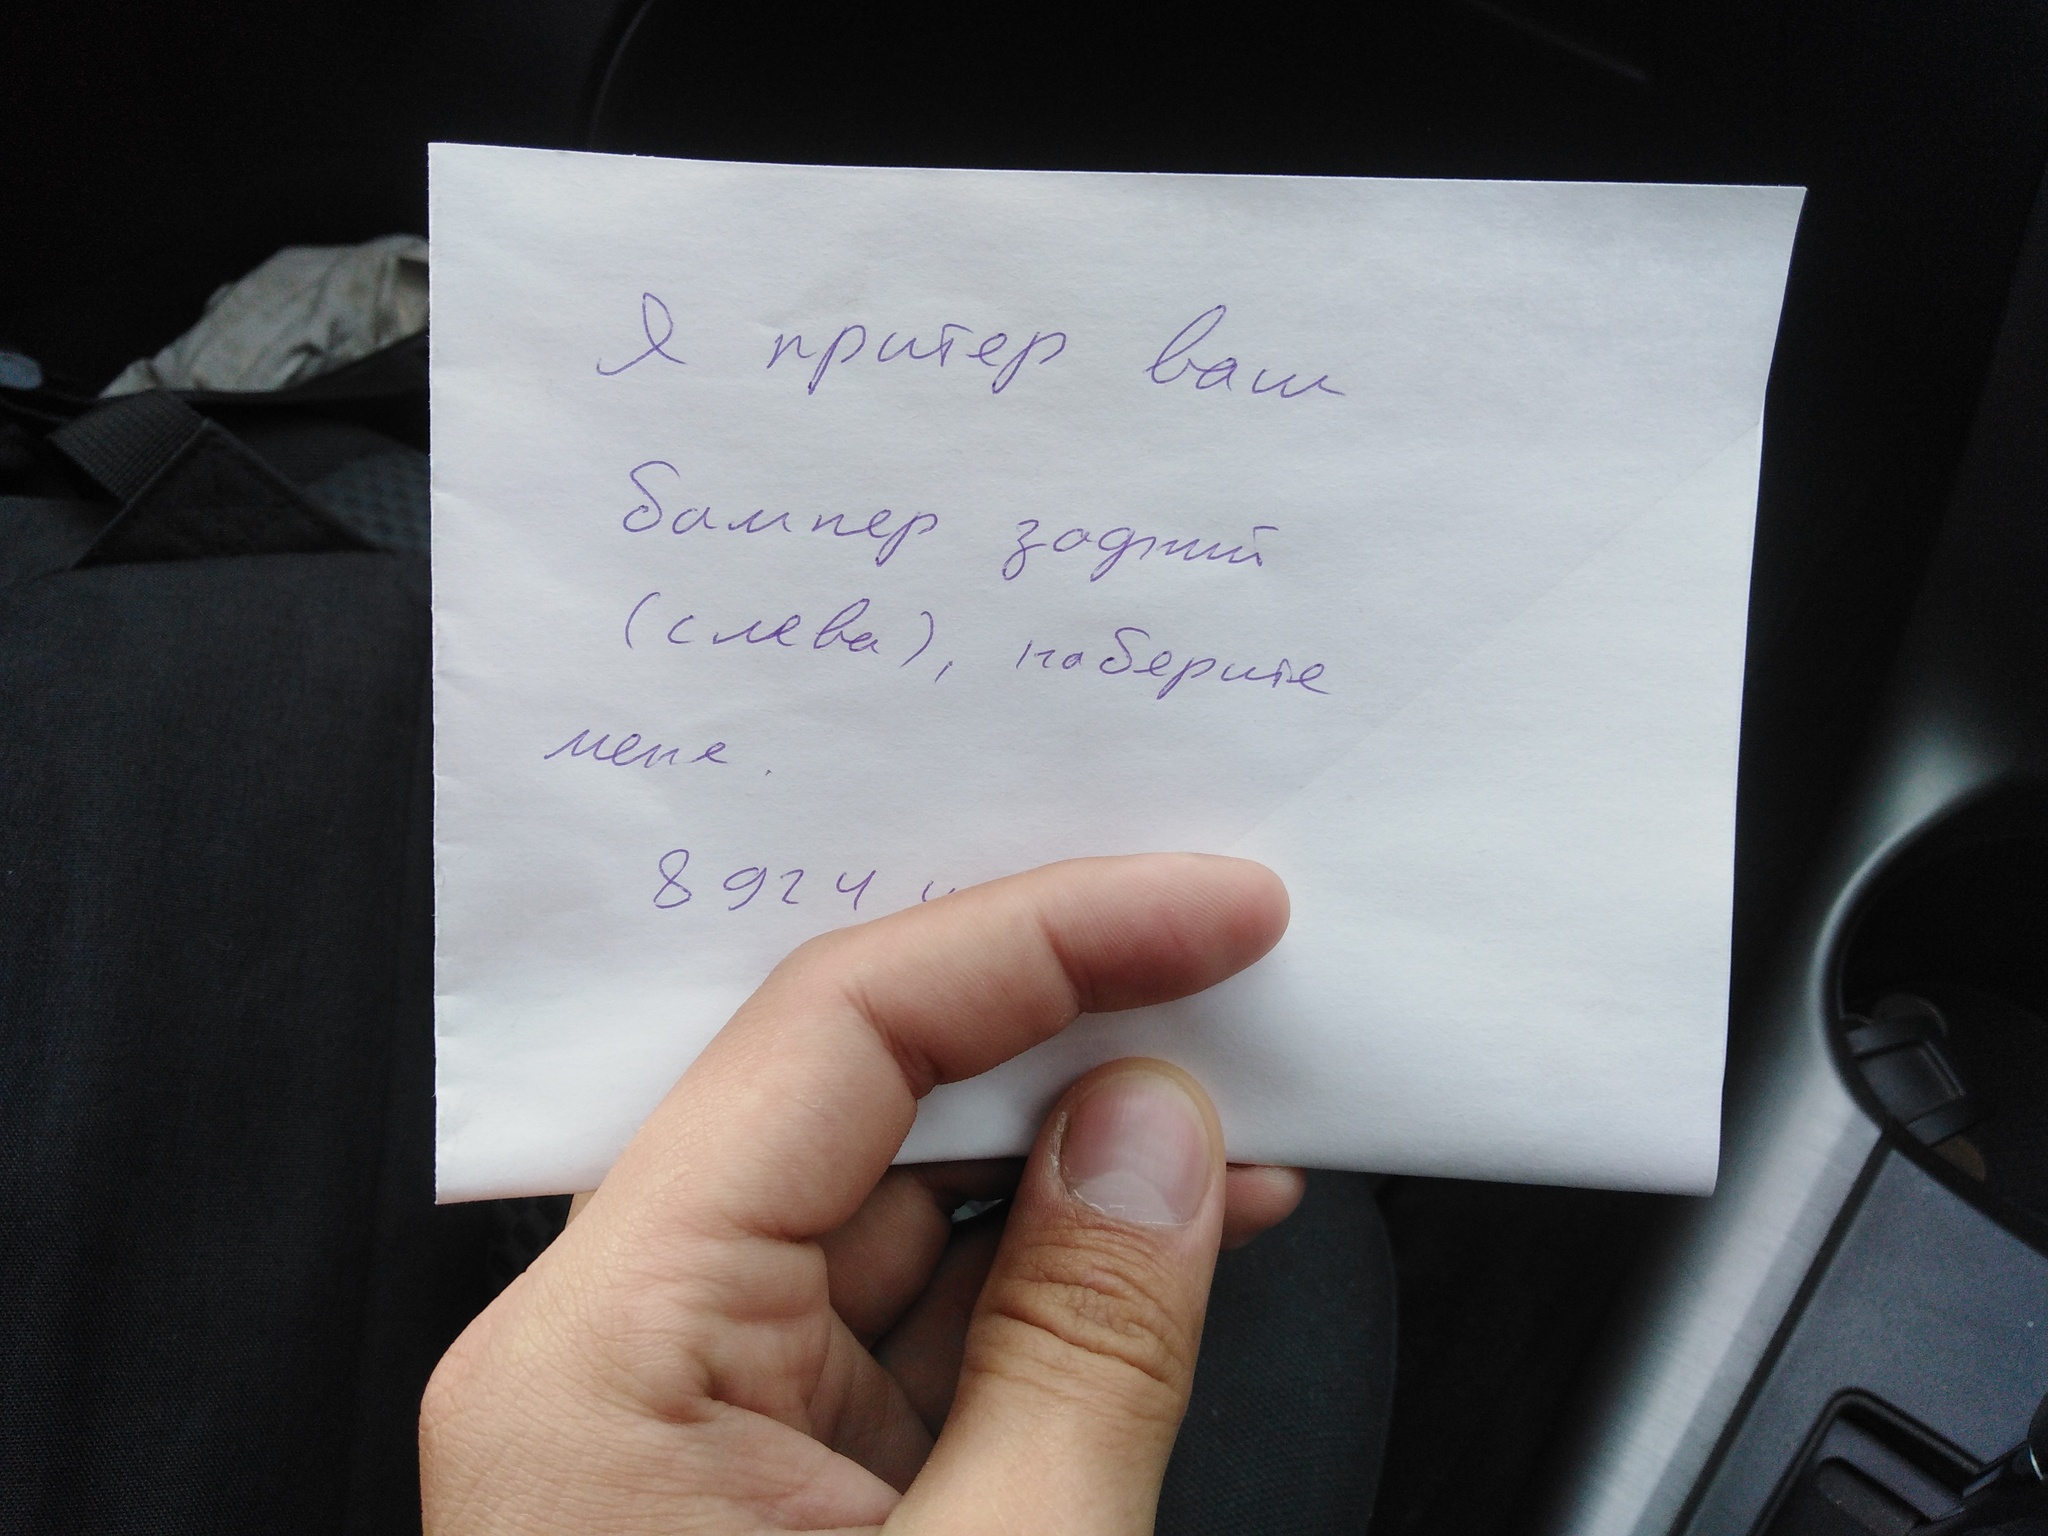 Я притер ваш
бампер задний
(слева), наберите
мене.
8 924